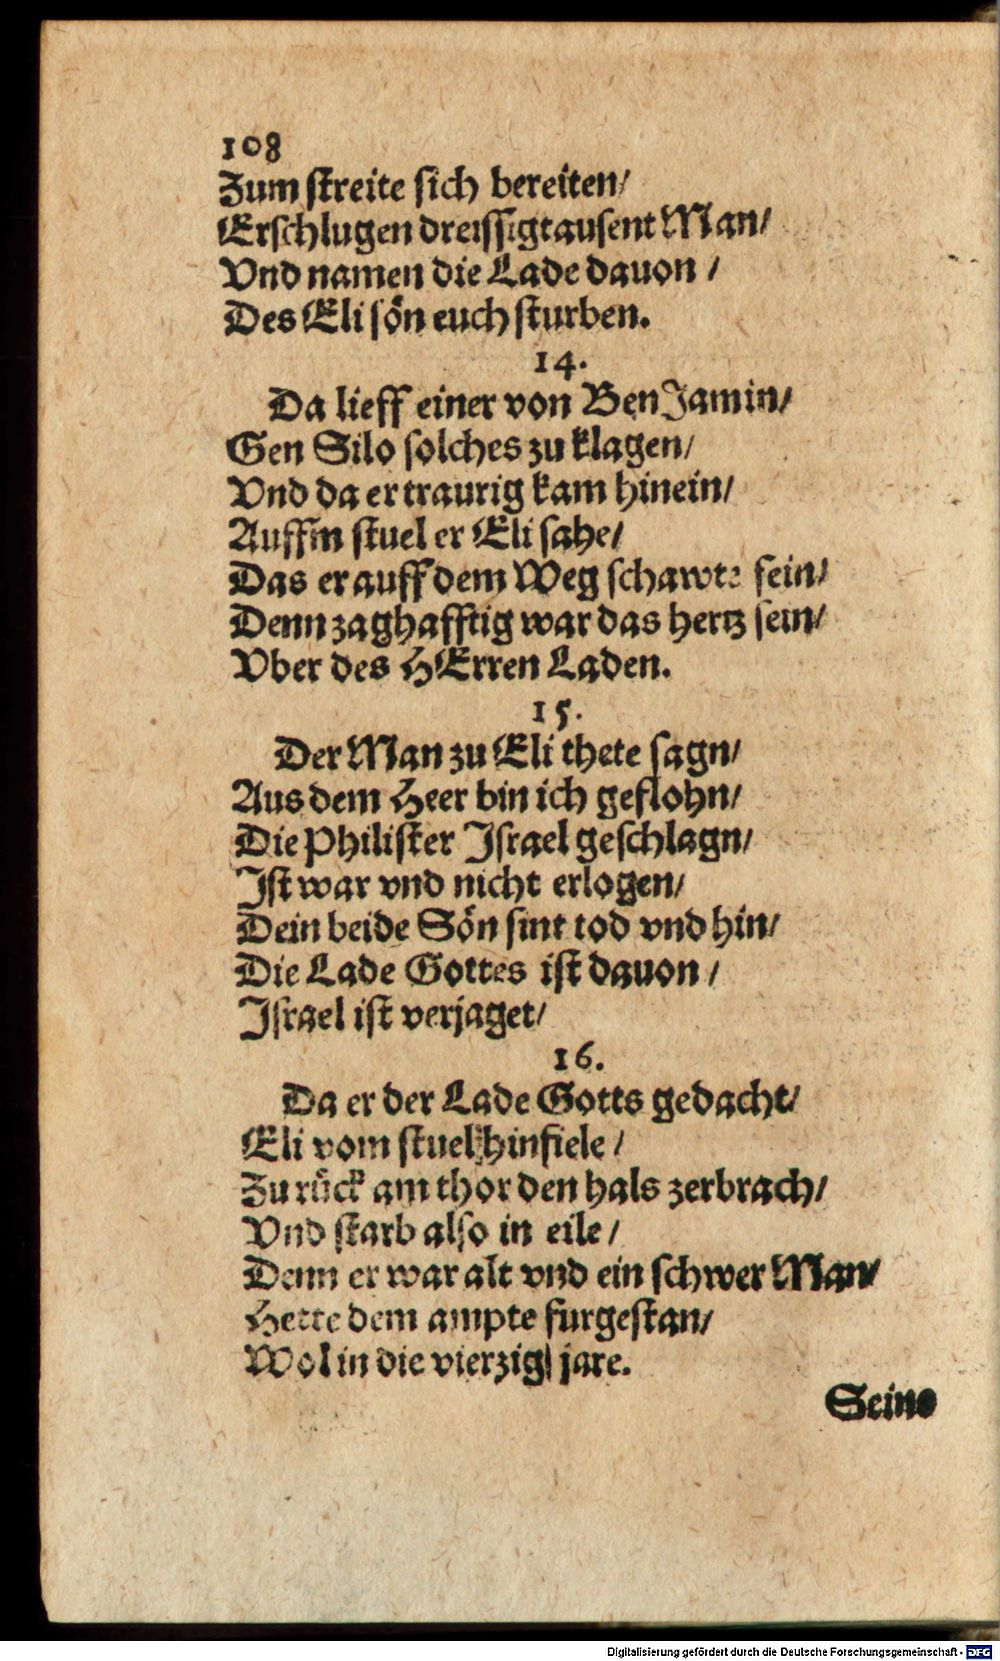 108
Zum ſtreite ſich bereiten/
Erſchlugen dreiſſigtauſent Man/
Vnd namen die Lade dauon /
Des Eli ſön euch ſturben.
14.
Da lieff einer von BenJamin/
Gen Silo ſolches zu klagen/
Vnd da er traurig kam hinein/
Auffm ſtuel er Eli ſahe/
Das er auff dem Weg ſchawte ſein/
Denn zaghafftig war das hertz ſein/
Vber des HErren Laden.
15.
Der Man zu Eli thete ſagn/
Aus dem Heer bin ich geflohn/
Die Philiſter Iſrael geſchlagn/
Iſt war vnd nicht erlogen/
Dein beide Sön ſint tod vnd hin/
Die Lade Gottes iſt dauon /
Iſrael iſt verjaget/
16.
Da er der Lade Gotts gedacht/
Eli vom ſtuel hinfiele /
Zu rück am thor den hals zerbrach/
Vnd ſtarb alſo in eile /
Denn er war alt vnd ein ſchwer Man/
Hette dem ampte furgeſtan/
Wol in die vierzig jare.
Seine
Digitalisierung gefördert durch die Deutsche Forschungsgemeinschaft - DFG